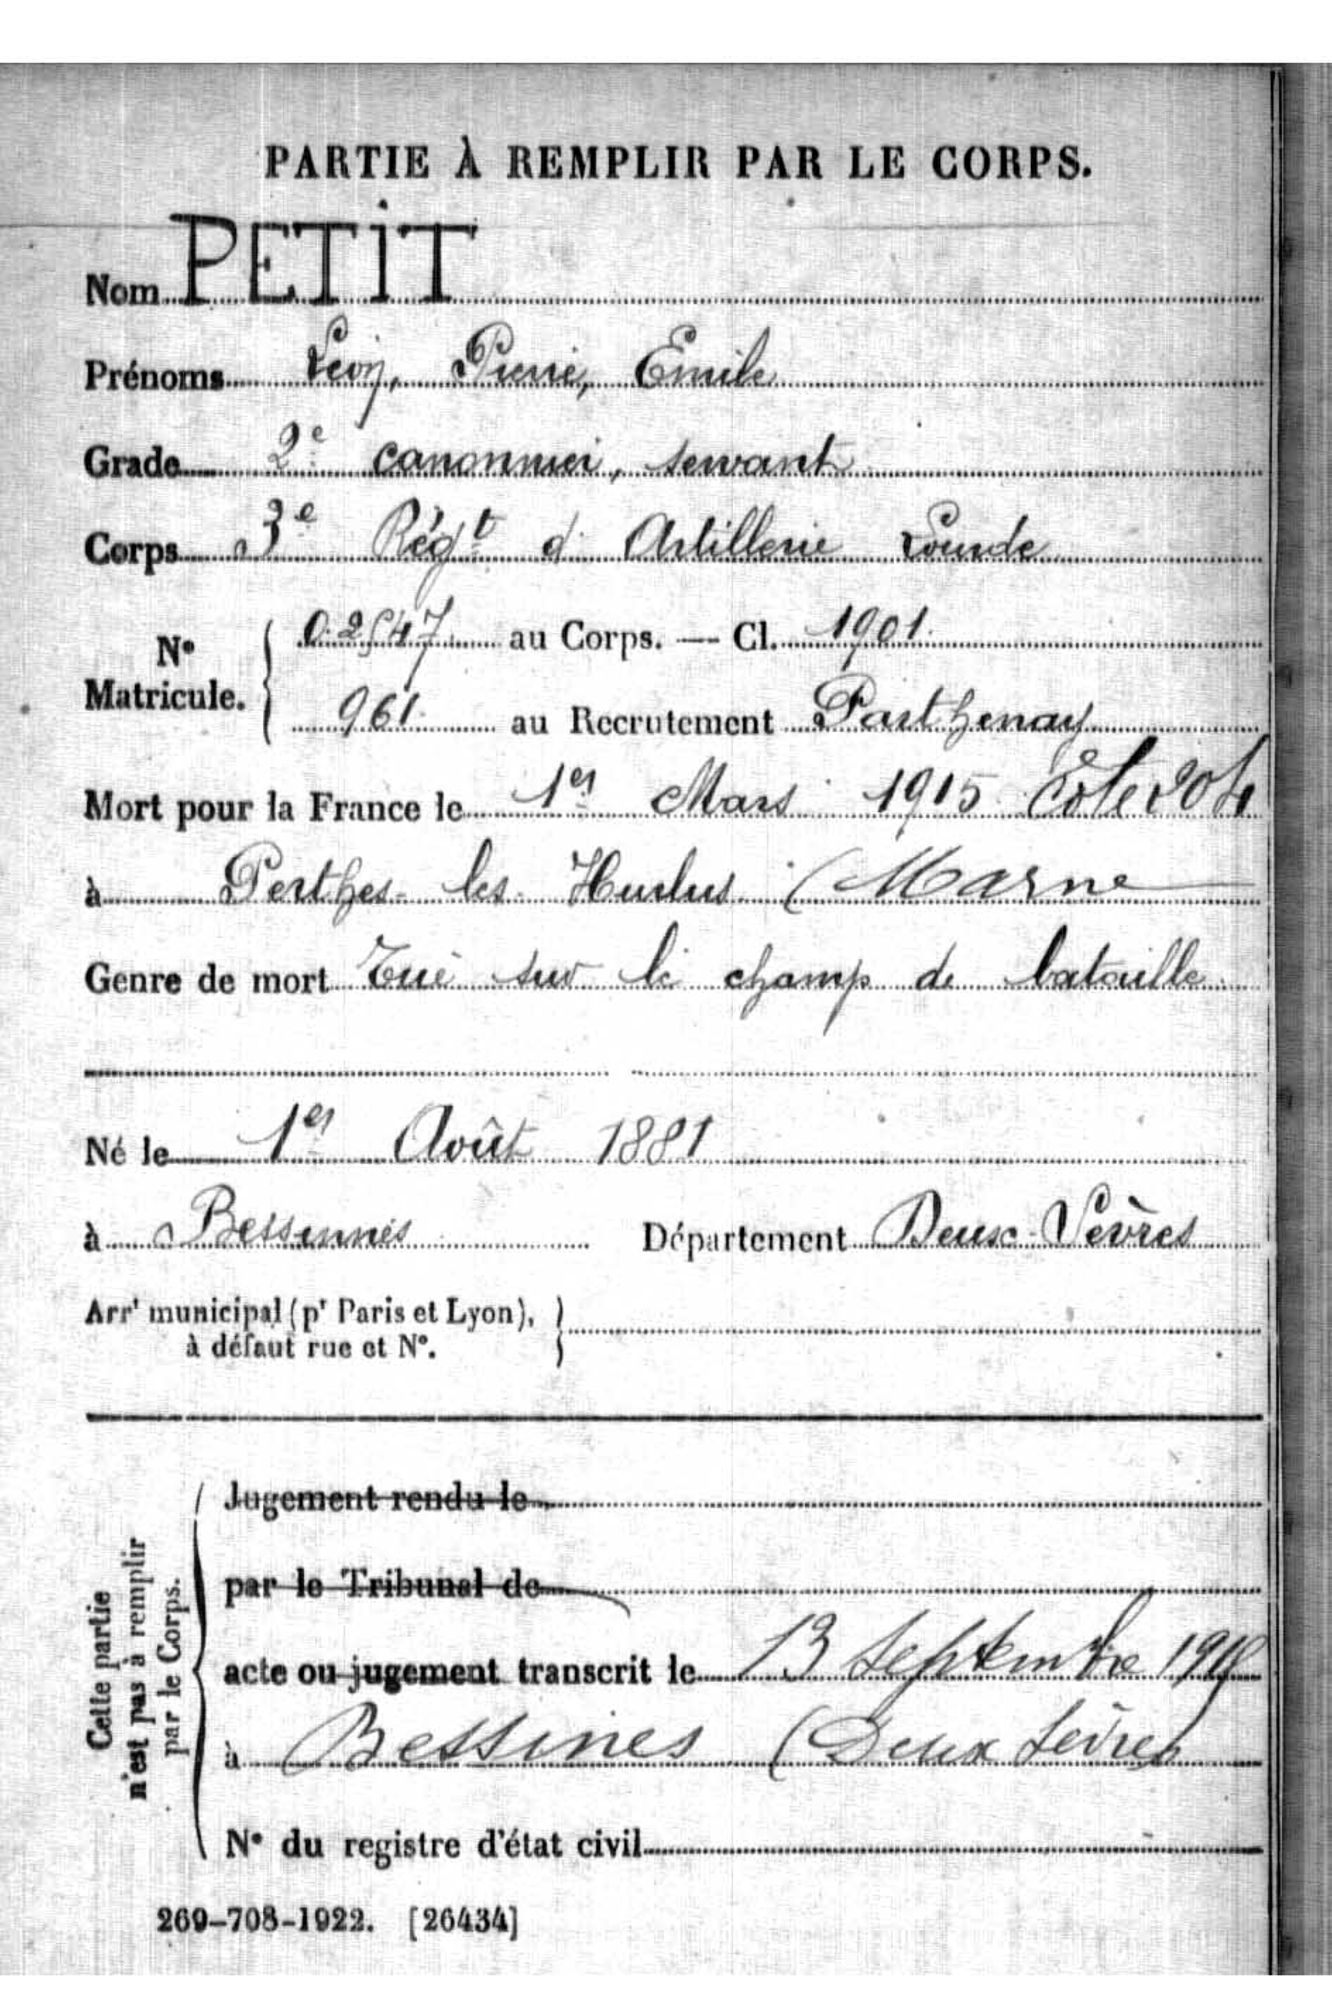 PARTIE À REMPLIR PAR LE CORPS.
Nom PETIT
Prénoms Léon, Pierre, Emile
Grade 2e canonnier, servant
Corps 3e Régt d'Artillerie Lourde
No Matricule. 02547 au Corps. — Cl. 1901
961 au Recrutement Parthenay
Mort pour la France le 1er Mars 1915 Côte 204
à Perthes-les-Hurlus (Marne
Genre de mort Tué sur le champ de bataille
Né le 1er Août 1881
à Bessinnes Département Deux-Sèvres
Arrt municipal (pr Paris et Lyon),
à défaut rue et No.
Cette partie n'est pas à remplir par le Corps.
Jugement rendu le
par le Tribunal de
acte ou jugement transcrit le 13 septembre
à Bessines (Deux Sèvres
No du registre d'état civil
269-708-1922. [26434]